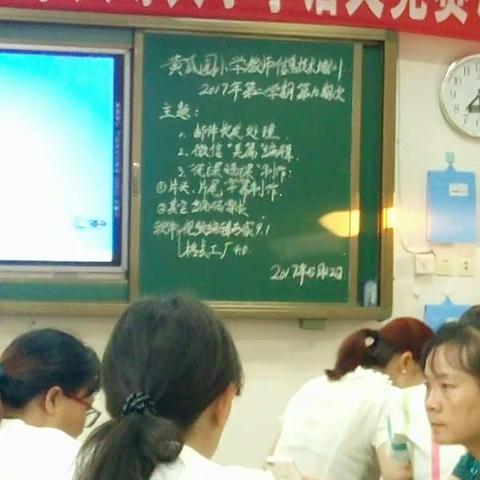 黄瓜园小学教师信息技术培训
2017年第二学期第九期次
主题：
1. 邮件收发处理
2. 微信"美篇"编辑
3. 说课晒课制作：
①片头、片尾字幕制作
软件：视频编辑专家9.1
格式工厂4.0
2017年5月12日